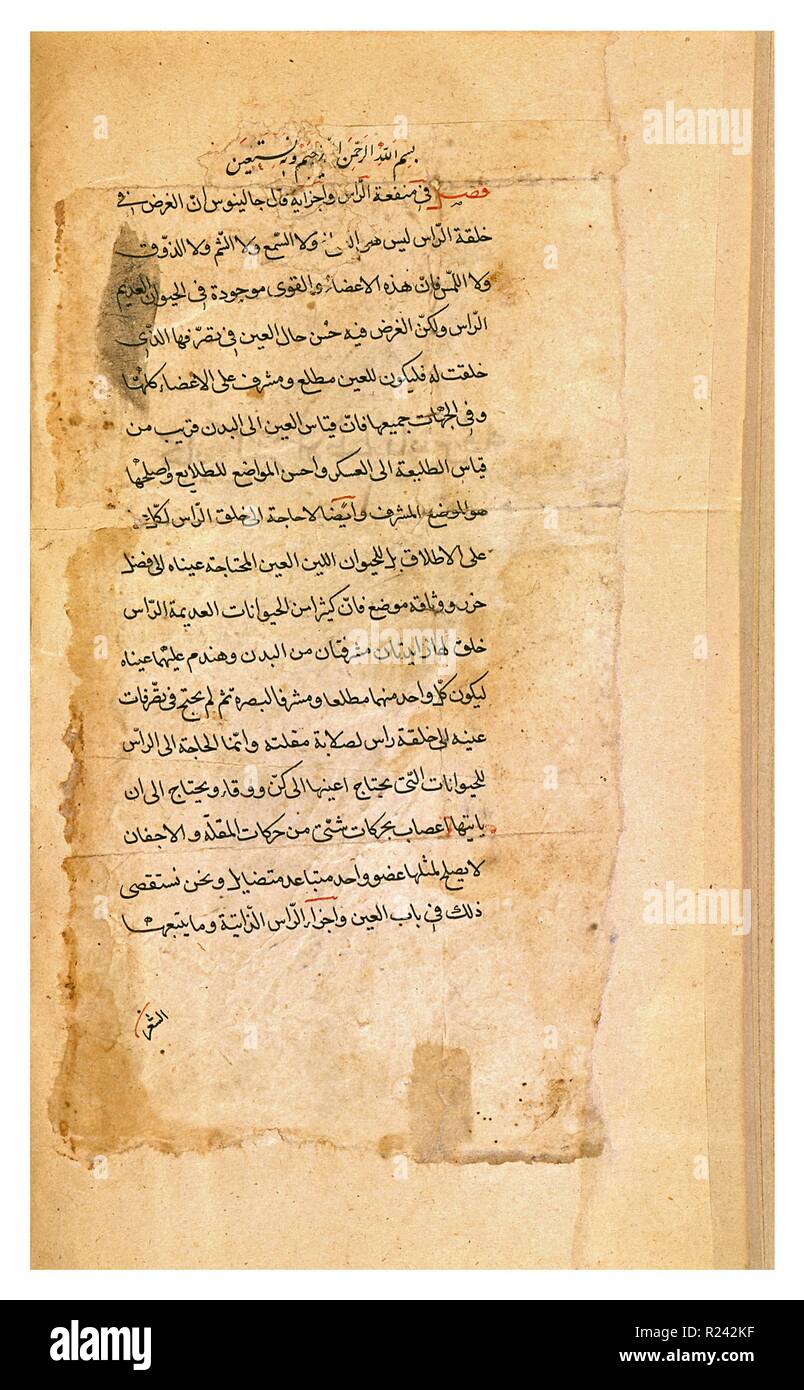 بسم الله الرحمن الرحيم وبه نستعين
فصل في منفعة الرّأس واجزايه قال جالينوس انّ الغرض في
خلقة الرّاس ليس هو ولا السّمع ولا الشّم ولا الذّوق
ولا اللمس فانّ هذه الاعضاء والقوى موجودة في الحيوان العديم
الرّاس ولكنّ الغرض فيه حُسن حال العين في تصرّفها الذّى
خلقت له فليكون للعين مطلع ومشرف على الاعضاء كلها
وفي الجهات جميعها فانّ قياس العين الى البدن قريب من
قياس الطليعة الى العسكر واحسن المواضع للطلايع واصلحها
هو الموضع المشرف وايضا لا حاجة الى خلق الرّاس لكل
على الاطلاق بل للحيوان اللين العين المحتاجة عيناه الى فضل
حرز ووثاقة موضع فانّ كثيرا من الحيوانات العديمة الرّاس
خلق لها مشرفتان من البدن وهندم عليهما عيناه
ليكون كلّ واحد منهما مطلعا ومشرفا لبصره ثم لم يحتج في تصّرفات
عينه الى خلقة راس لصلابة مقلته وانّما الحاجة الى الراس
للحيوانات التّي يحتاج اعينها الى كنّ ووقاء ويحتاج الى ان
ياتيها اعصاب بحركات شتّى من حركات المقلة والاجفان
لا يصلح لمثلها عضو واحد متباعد متضايل ونحن نستقصى
ذلك في باب العين واجزاء الرّاس الذّاتية وما يتبعها
الشعر
alamy
a
Image ID: R242KF
www.alamy.com